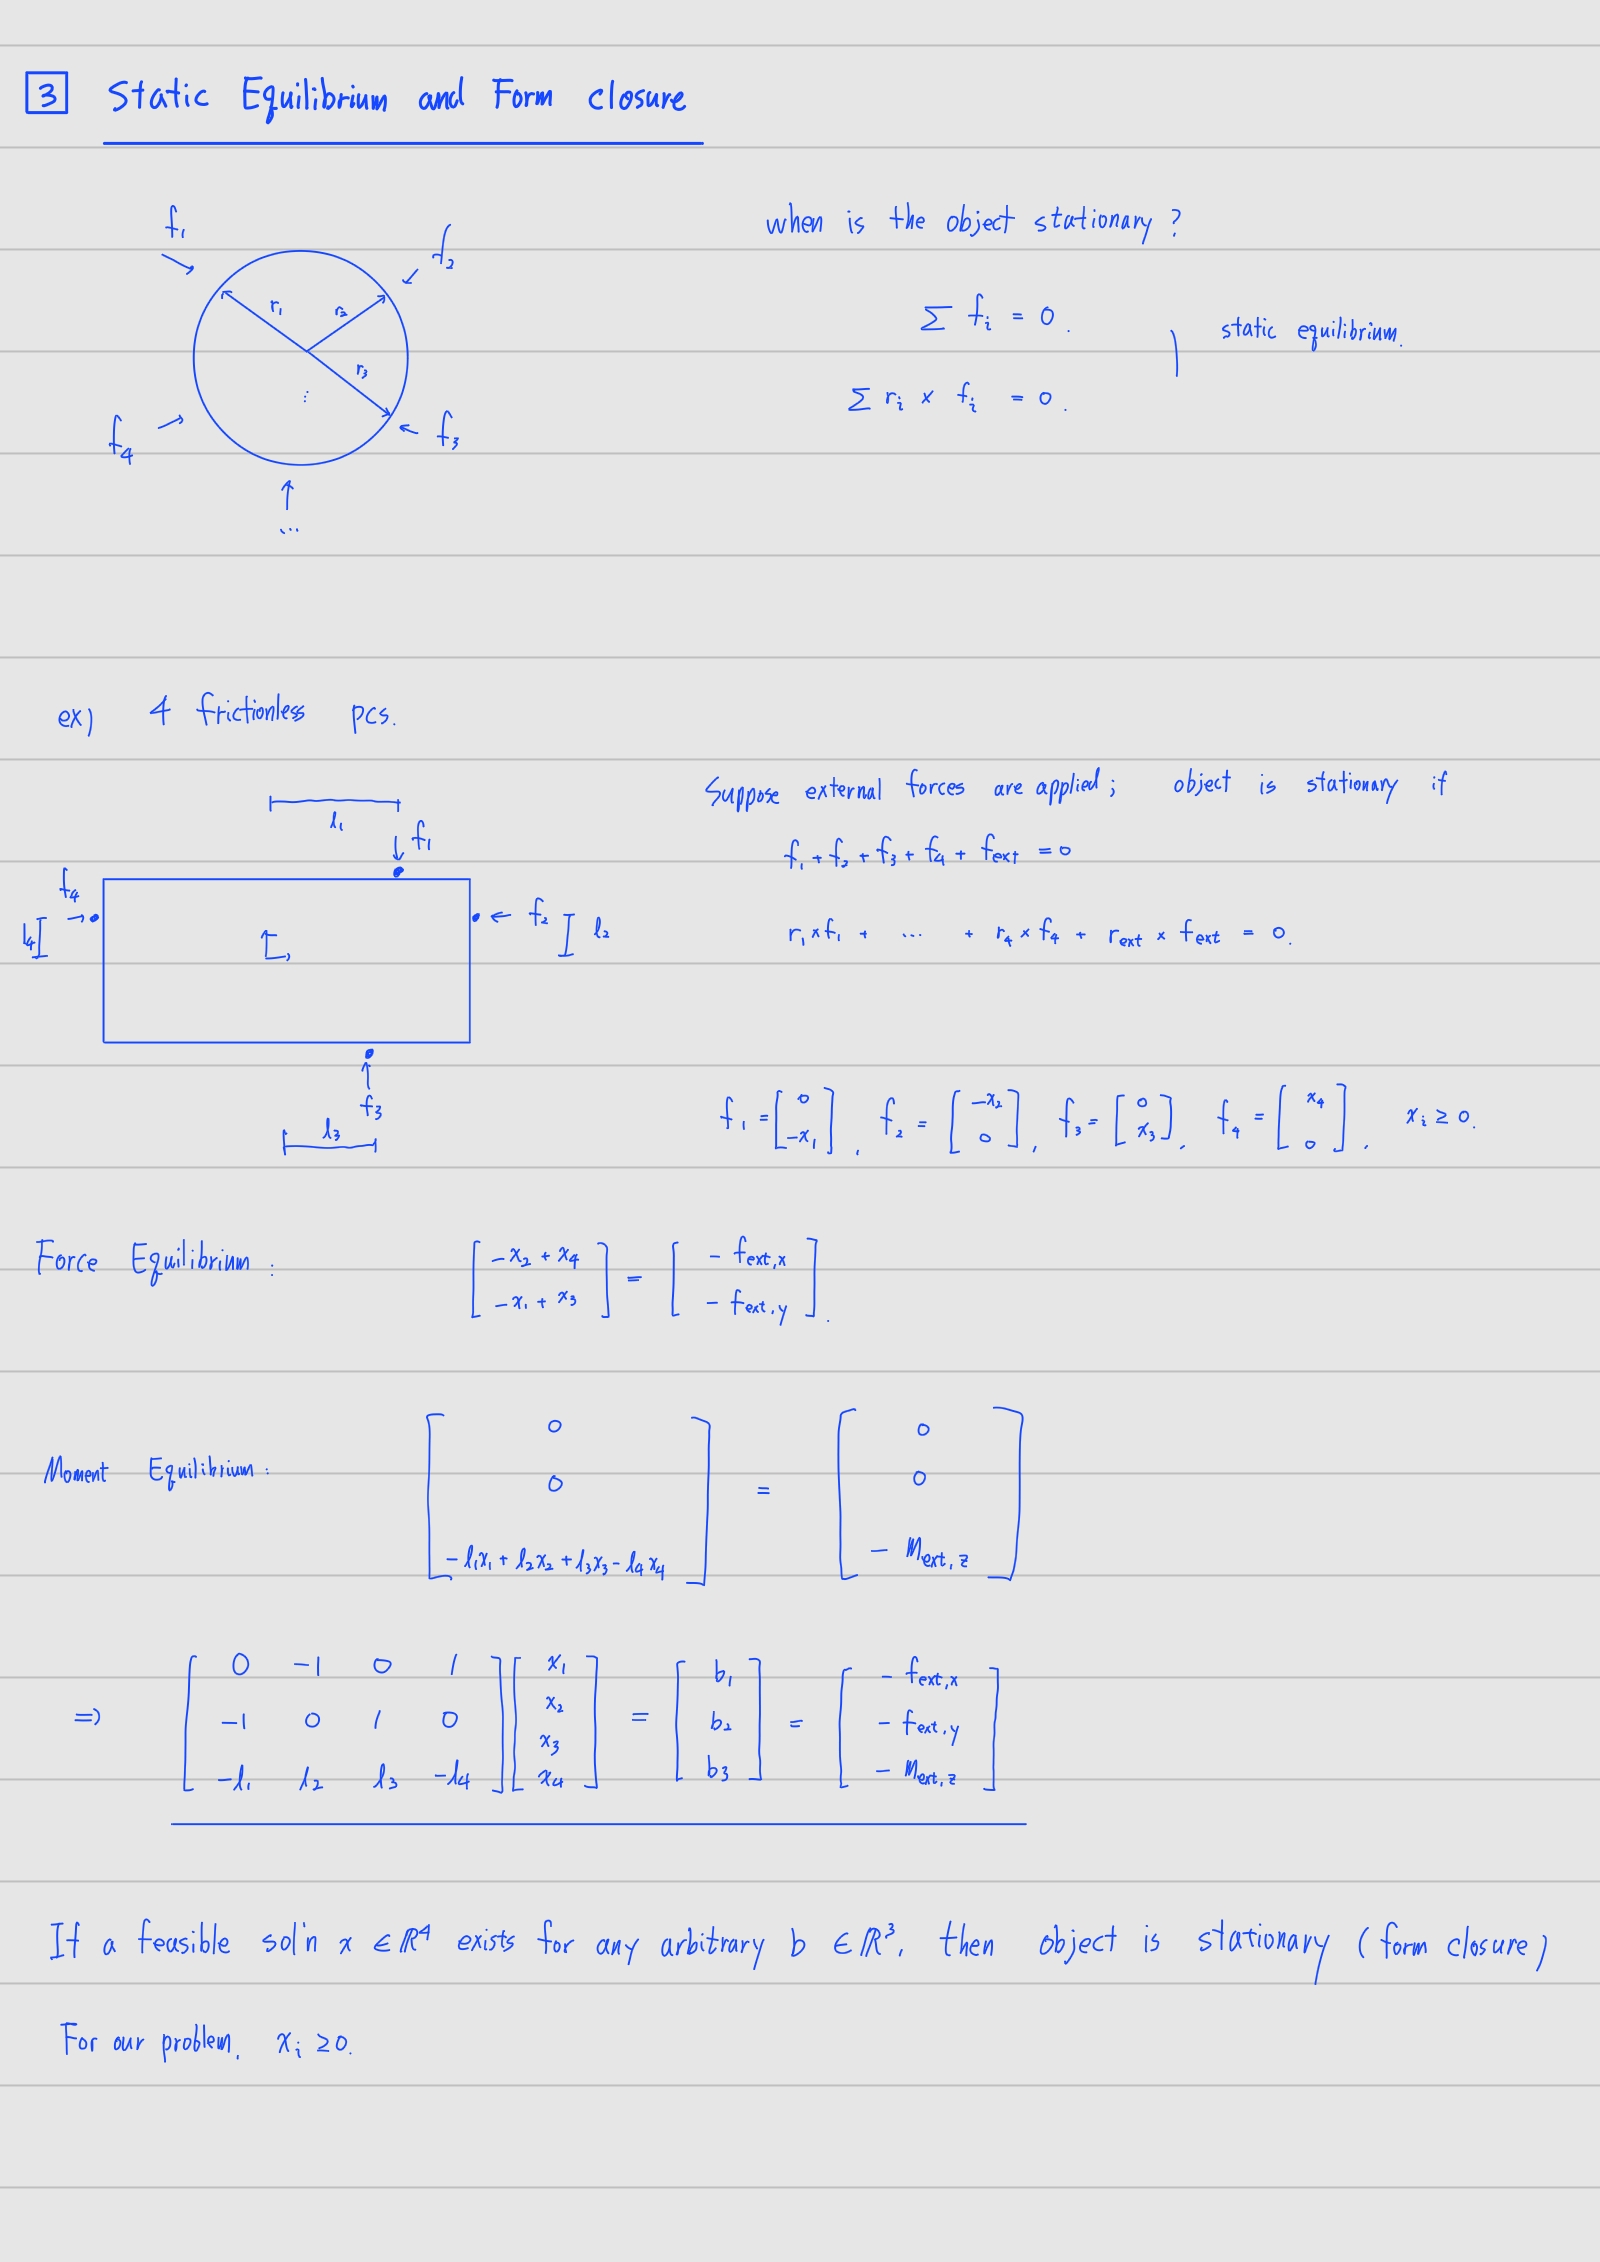 3 Static Equilibrium and Form closure
when is the object stationary ?
f₁ f₂
r₁ r₂
r₃
⋮
f₄ f₃
...
Σ fᵢ = 0.
static equilibrium.
Σ rᵢ × fᵢ = 0.
ex) 4 frictionless pcs.
l₁
f₁
f₄
f₂
l₄ l₂
f₃
l₃
Suppose external forces are applied; object is stationary if
f₁ + f₂ + f₃ + f₄ + fext = 0
r₁ × f₁ + ... + r₄ × f₄ + rext × fext = 0.
f₁ = [0; -x₁], f₂ = [-x₂; 0], f₃ = [0; x₃], f₄ = [x₄; 0], xᵢ ≥ 0.
Force Equilibrium : [-x₂ + x₄; -x₁ + x₃] = [-fext,x; -fext,y].
Moment Equilibrium : [0; 0; -l₁x₁ + l₂x₂ + l₃x₃ - l₄x₄] = [0; 0; -Mext,z]
⇒ [0 -1 0 1; -1 0 1 0; -l₁ l₂ l₃ -l₄] [x₁; x₂; x₃; x₄] = [b₁; b₂; b₃] = [-fext,x; -fext,y; -Mext,z]
If a feasible sol'n x ∈ ℝ⁴ exists for any arbitrary b ∈ ℝ³, then object is stationary (form closure)
For our problem, xᵢ ≥ 0.